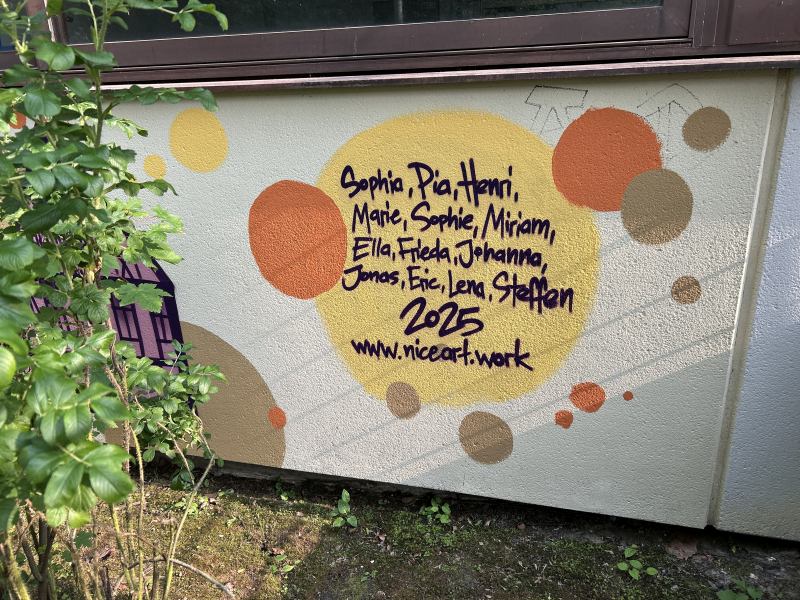 Sophia, Pia, Henri,
Marie, Sophie, Miriam,
Ella, Frieda, Johanna,
Jonas, Eric, Lena, Steffen
2025
www.niceart.work